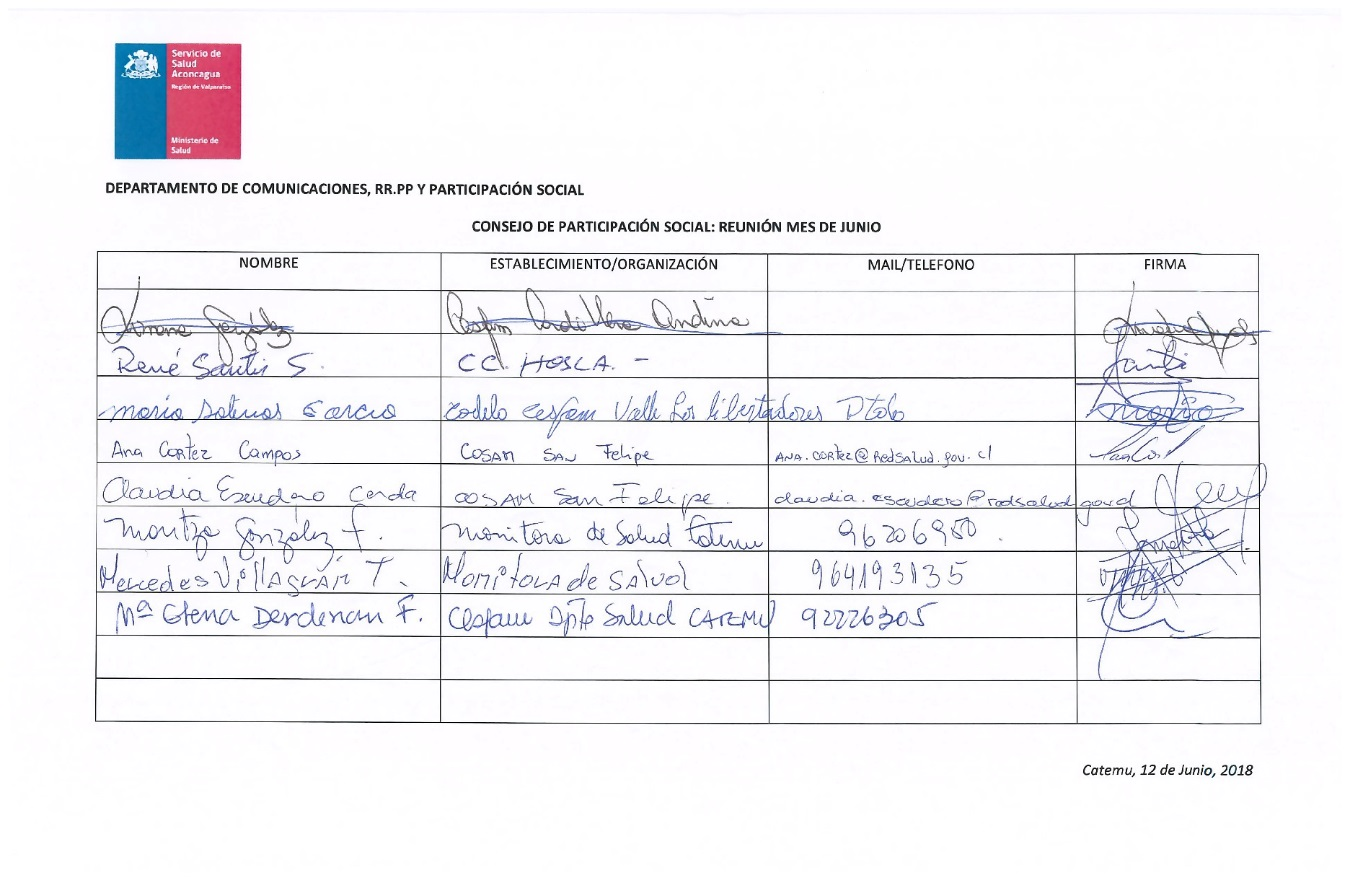 Servicio de
Salud
Aconcagua
Región de Valparaíso
Ministerio de
Salud
DEPARTAMENTO DE COMUNICACIONES, RR.PP Y PARTICIPACIÓN SOCIAL
CONSEJO DE PARTICIPACIÓN SOCIAL: REUNIÓN MES DE JUNIO
NOMBRE ESTABLECIMIENTO/ORGANIZACIÓN MAIL/TELEFONO FIRMA
González Cesfam Cordillera Andina
René Santis S. CC. HOSLA. -
María Salinas García Codelo cesfam Valle Los Libertadores
Ana Cortez Campos COSAM SAN Felipe ANA.CORTEZ@RedSalud.gov.cl
Claudia Escudero Cerda COSAM San Felipe. claudia.escudero@redsalud.gov.cl
Maritza González F. Monitora de Salud Catemu 96206950.
Mercedes Villagrán T. Monitora de Salud 964193135
Mª Elena F. Cesfam Dpto Salud CATEMU 92226305
Catemu, 12 de Junio, 2018